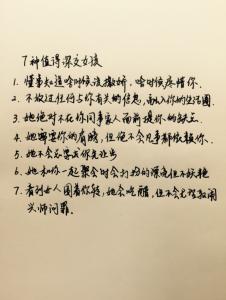 7种值得深交女孩
1. 懂事知道啥时候该撒娇，啥时候疼惜你.
2. 不放过任何与你有关的信息，融入你的生活圈.
3. 她绝对不在你同事家人面前提你的缺点.
4. 她需要你的肩膀，但绝不会凡事都依赖你.
5. 她不会总要求你先让步
6. 她和你一起聚会时会打扮的漂亮但不妖艳
7. 有别女人围着你转，她会吃醋，但不会无理取闹
兴师问罪.